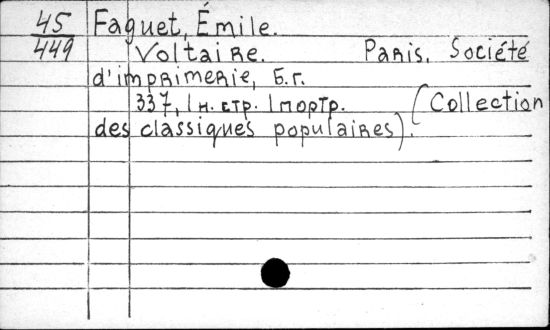 45 Faguet, Émile.
449 Voltaire. Paris, Société
d'imprimerie, Б.г.
337, 1 н. стр. 1 портр. (Collection
des classiques populaires).